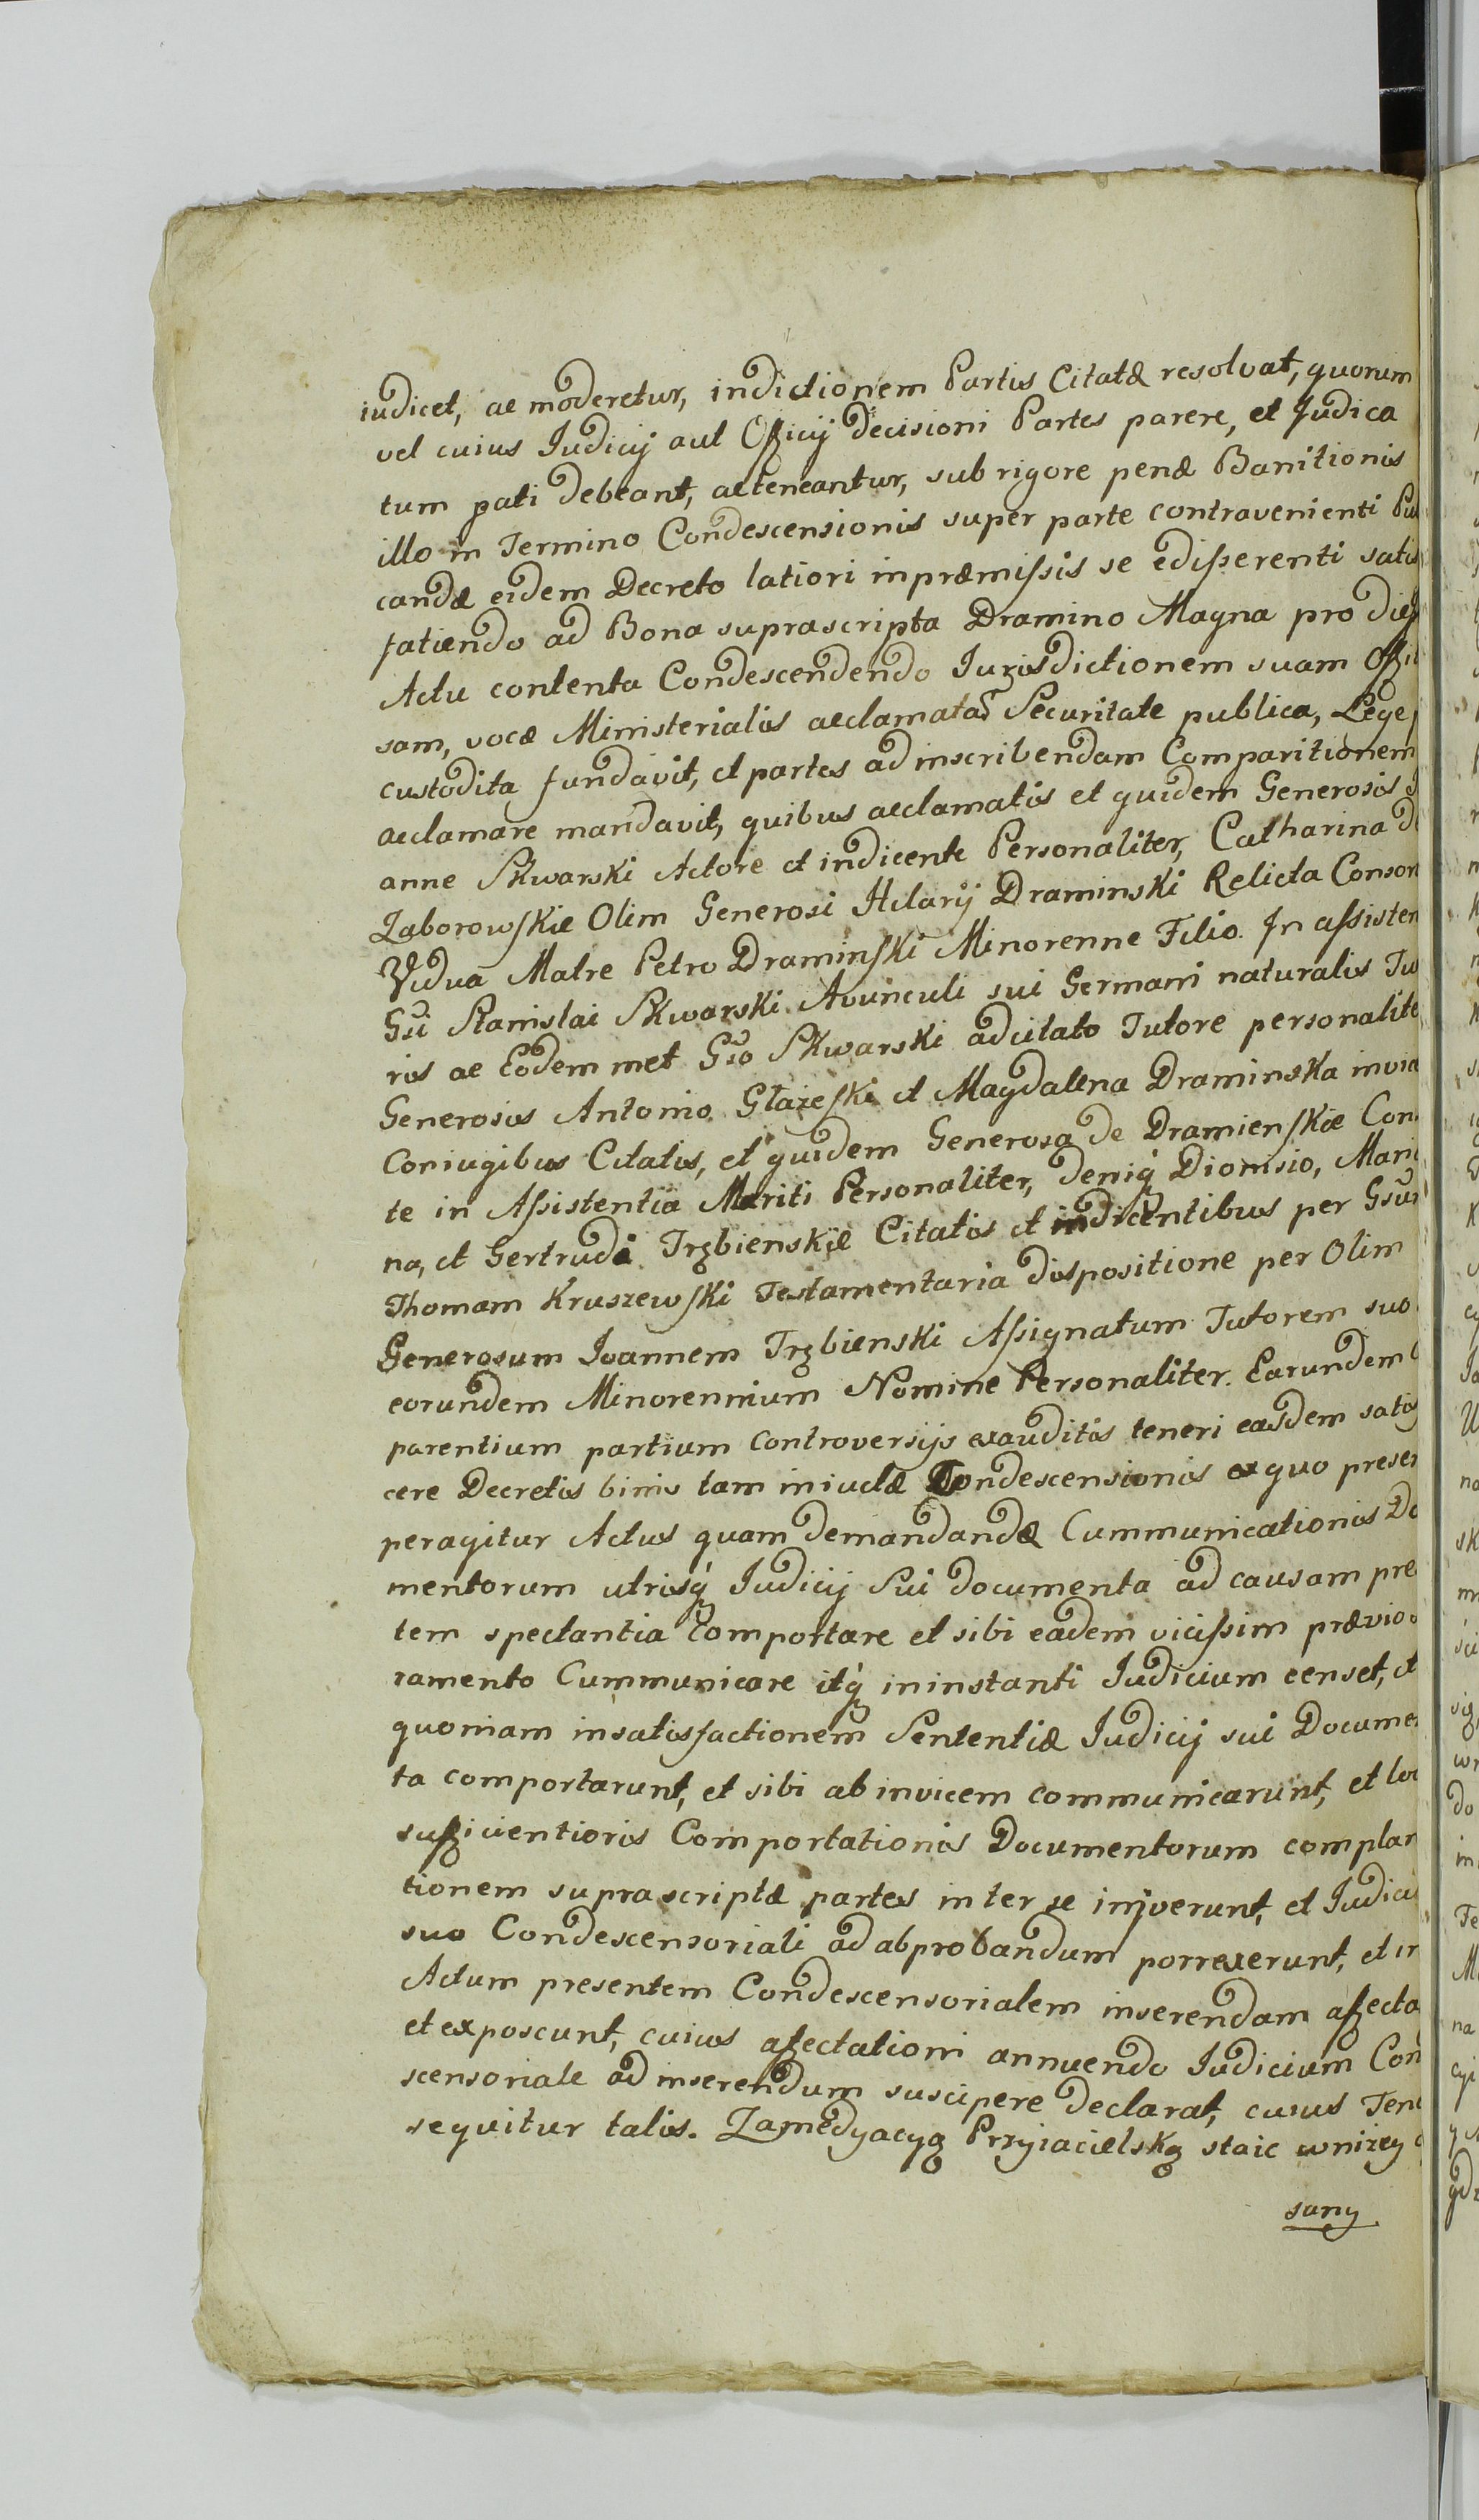 iudicet, ac moderetur, indictionem Partis Citatæ resolvat, quorum
vel cuius Iudicij aut Officij decisioni Partes parere, et Judica
tum pati debeant, ac teneantur, sub rigore penæ Banitionis
illo in Termino Condescensionis super parte contravenienti
candæ eidem Decreto latiori in præmissis se edisserenti satis
faciendo ad Bona suprascripta Dramino Magna pro
Actu contenta Condescendendo Iurisdictionem suam
sam, voce Ministerialis acclamatas Securitate publica, Lege
custodita fundavit, et partes ad inscribendam Comparitionem
acclamare mandavit, quibus acclamatis et quidem Generosis
anne Skwarski Actore et indicente Personaliter, Catharina de
Zaborowskie Olim Generosi Hilarij Draminski Relicta Consor
Vidua Matre Petro Draminski Minorenne Filio. In assisten
Gsi Stanislai Skwarski Avunculi sui Germani naturalis Tu
ris ac Eodem met Gso Skwarski adcitato Tutore personalite
Generosis Antonio Głażeski et Magdalena Draminska invia
Coniugibus Citatis, et quidem Generosa de Dramienskie Con
te in Assistentia Mariti Personaliter, deniq́ Dionisio, Mari
na, et Gertrudi Trębienskie Citatis et indicentibus per Gsu
Thomam Kruszewski Testamentaria dispositione per Olim
Generosum Ioannem Trębienski Assignatum Tutorem suo
eorundem Minorennium Nomine Personaliter. Earundem
parentium partium controversijs exauditis teneri easdem satis
cere Decretis binis tam iniuctæ Condescensionis ex quo presen
peragitur Actus quam demandandæ Cummunicationis Do
mentorum utrisq́ Iudicij Sui documenta ad causam pre
tem spectantia comportare et sibi eadem vicissim prævio
ramento Cummunicare itq́ in instanti Iudicium censet, et
quoniam in satisfactionem Sententiæ Iudicij sui Docume
ta comportarunt, et sibi ab invicem communicarunt, et loc
sufficientioris Comportationis Documentorum complan
tionem suprascriptæ partes inter se inijverunt, et Iudici
suo Condescensoriali ad abprobandum porrexerunt, et in
Actum presentem Condescensorialem inserendam affecta
et exposcunt, cuius affectationi annuendo Iudicium Con
scensoriale ad inserendum suscipere declarat, cuius Ten
sequitur talis. Zamedyacyą Przyiacielską staie wnizey
sany